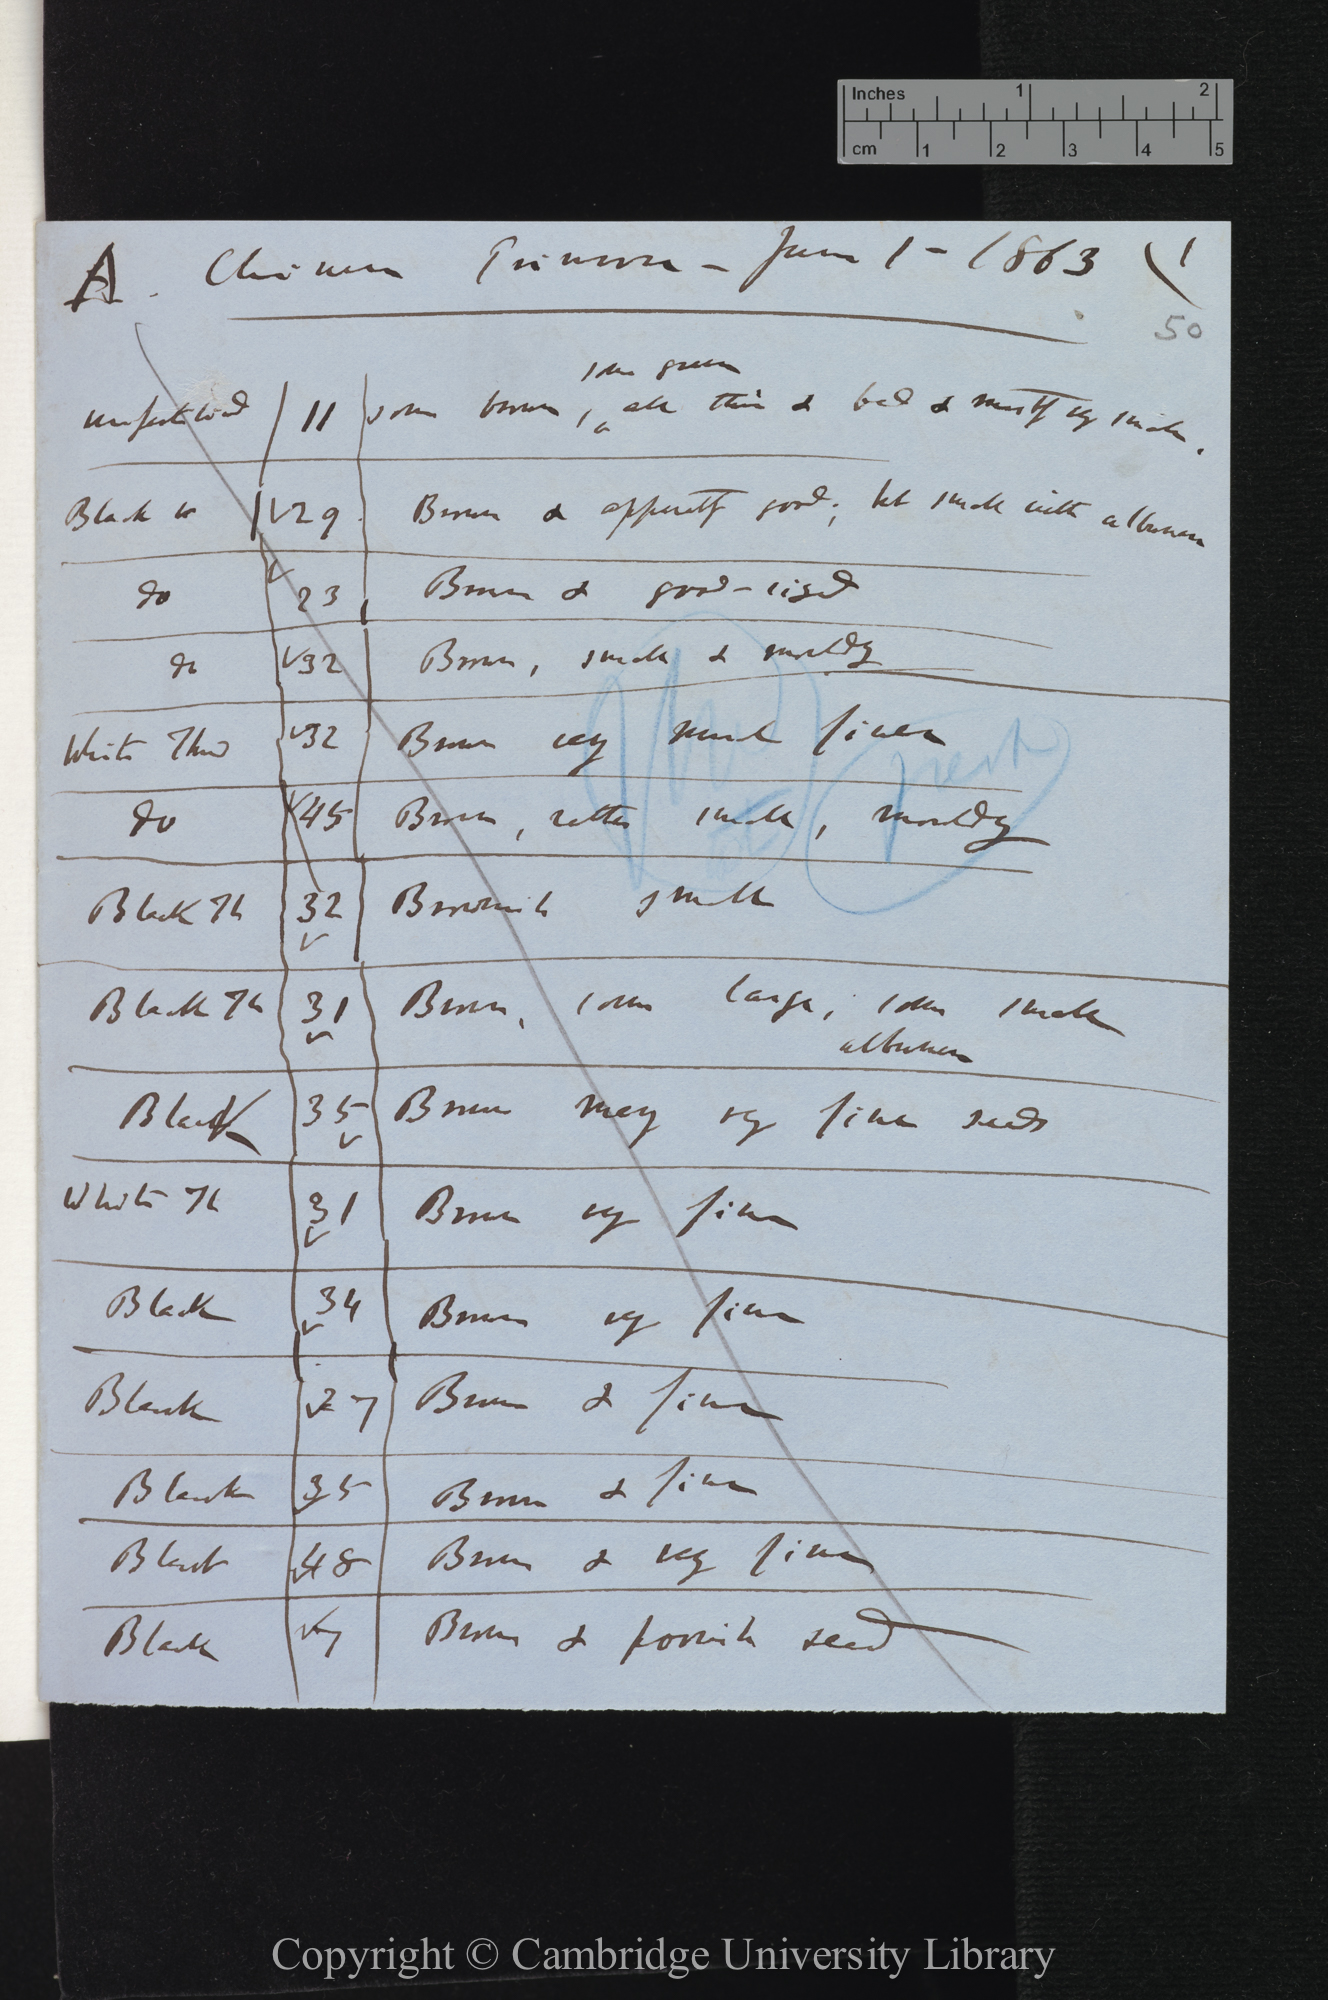 Inches 1 2
cm 1 2 3 4 5
A. Chinese Primrose – June 1 – 1863 1
50
some green
unfertilised 11 some brown, all thin & bad & mostly vy small.
Black 29 Brown & apparently good; but small with albumen
do 23 Brown & good-sized
do 32 Brown, small & mouldy
White Thr 32 Brown very much finer
do 45 Brown, rather small, mouldy
Black Th 32 Brownish small
Black Th 31 Brown, some large, some small
albumen
Black 35 Brown many vy fine seeds
White Th 31 Brown vy fine
Black 34 Brown vy fine
Black 27 Brown & fine
Black 35 Brown & fine
Black 48 Brown & vy fine
Black 7 Brown & seed
Copyright © Cambridge University Library